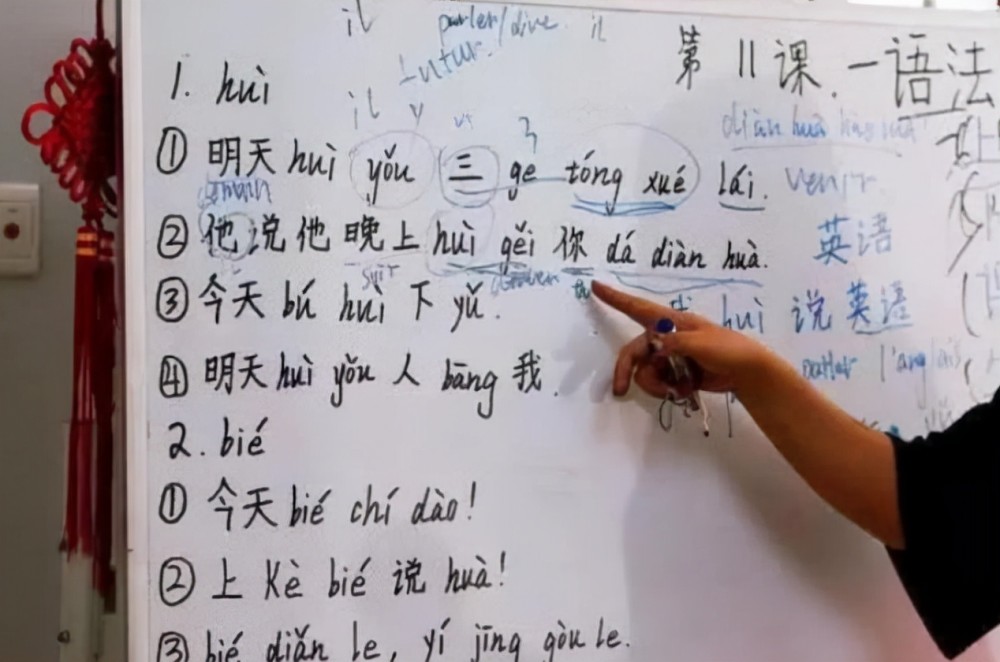 il parler/dire il
futur.
第11课.一语法
1. huì
il y
diàn huà
①明天huì yǒu 三 ge tóng xué lái. venir.
demain
②他说他晚上huì gěi 你 dá diàn huà. 英语
soir
③今天 bú huì 下 yǔ. huì 说英语
parler l'anglais
④明天huì yǒu 人 bāng 我.
2. bié
①今天 bié chí dào!
②上 Kè bié 说 huà!
③ bié diǎn le, yí jīng gòu le.